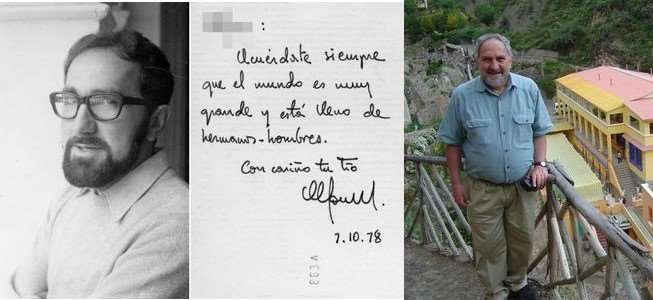 :
Acuérdate siempre
que el mundo es muy
grande y está lleno de
hermanos-hombres.
Con cariño tu tío
7.10.78